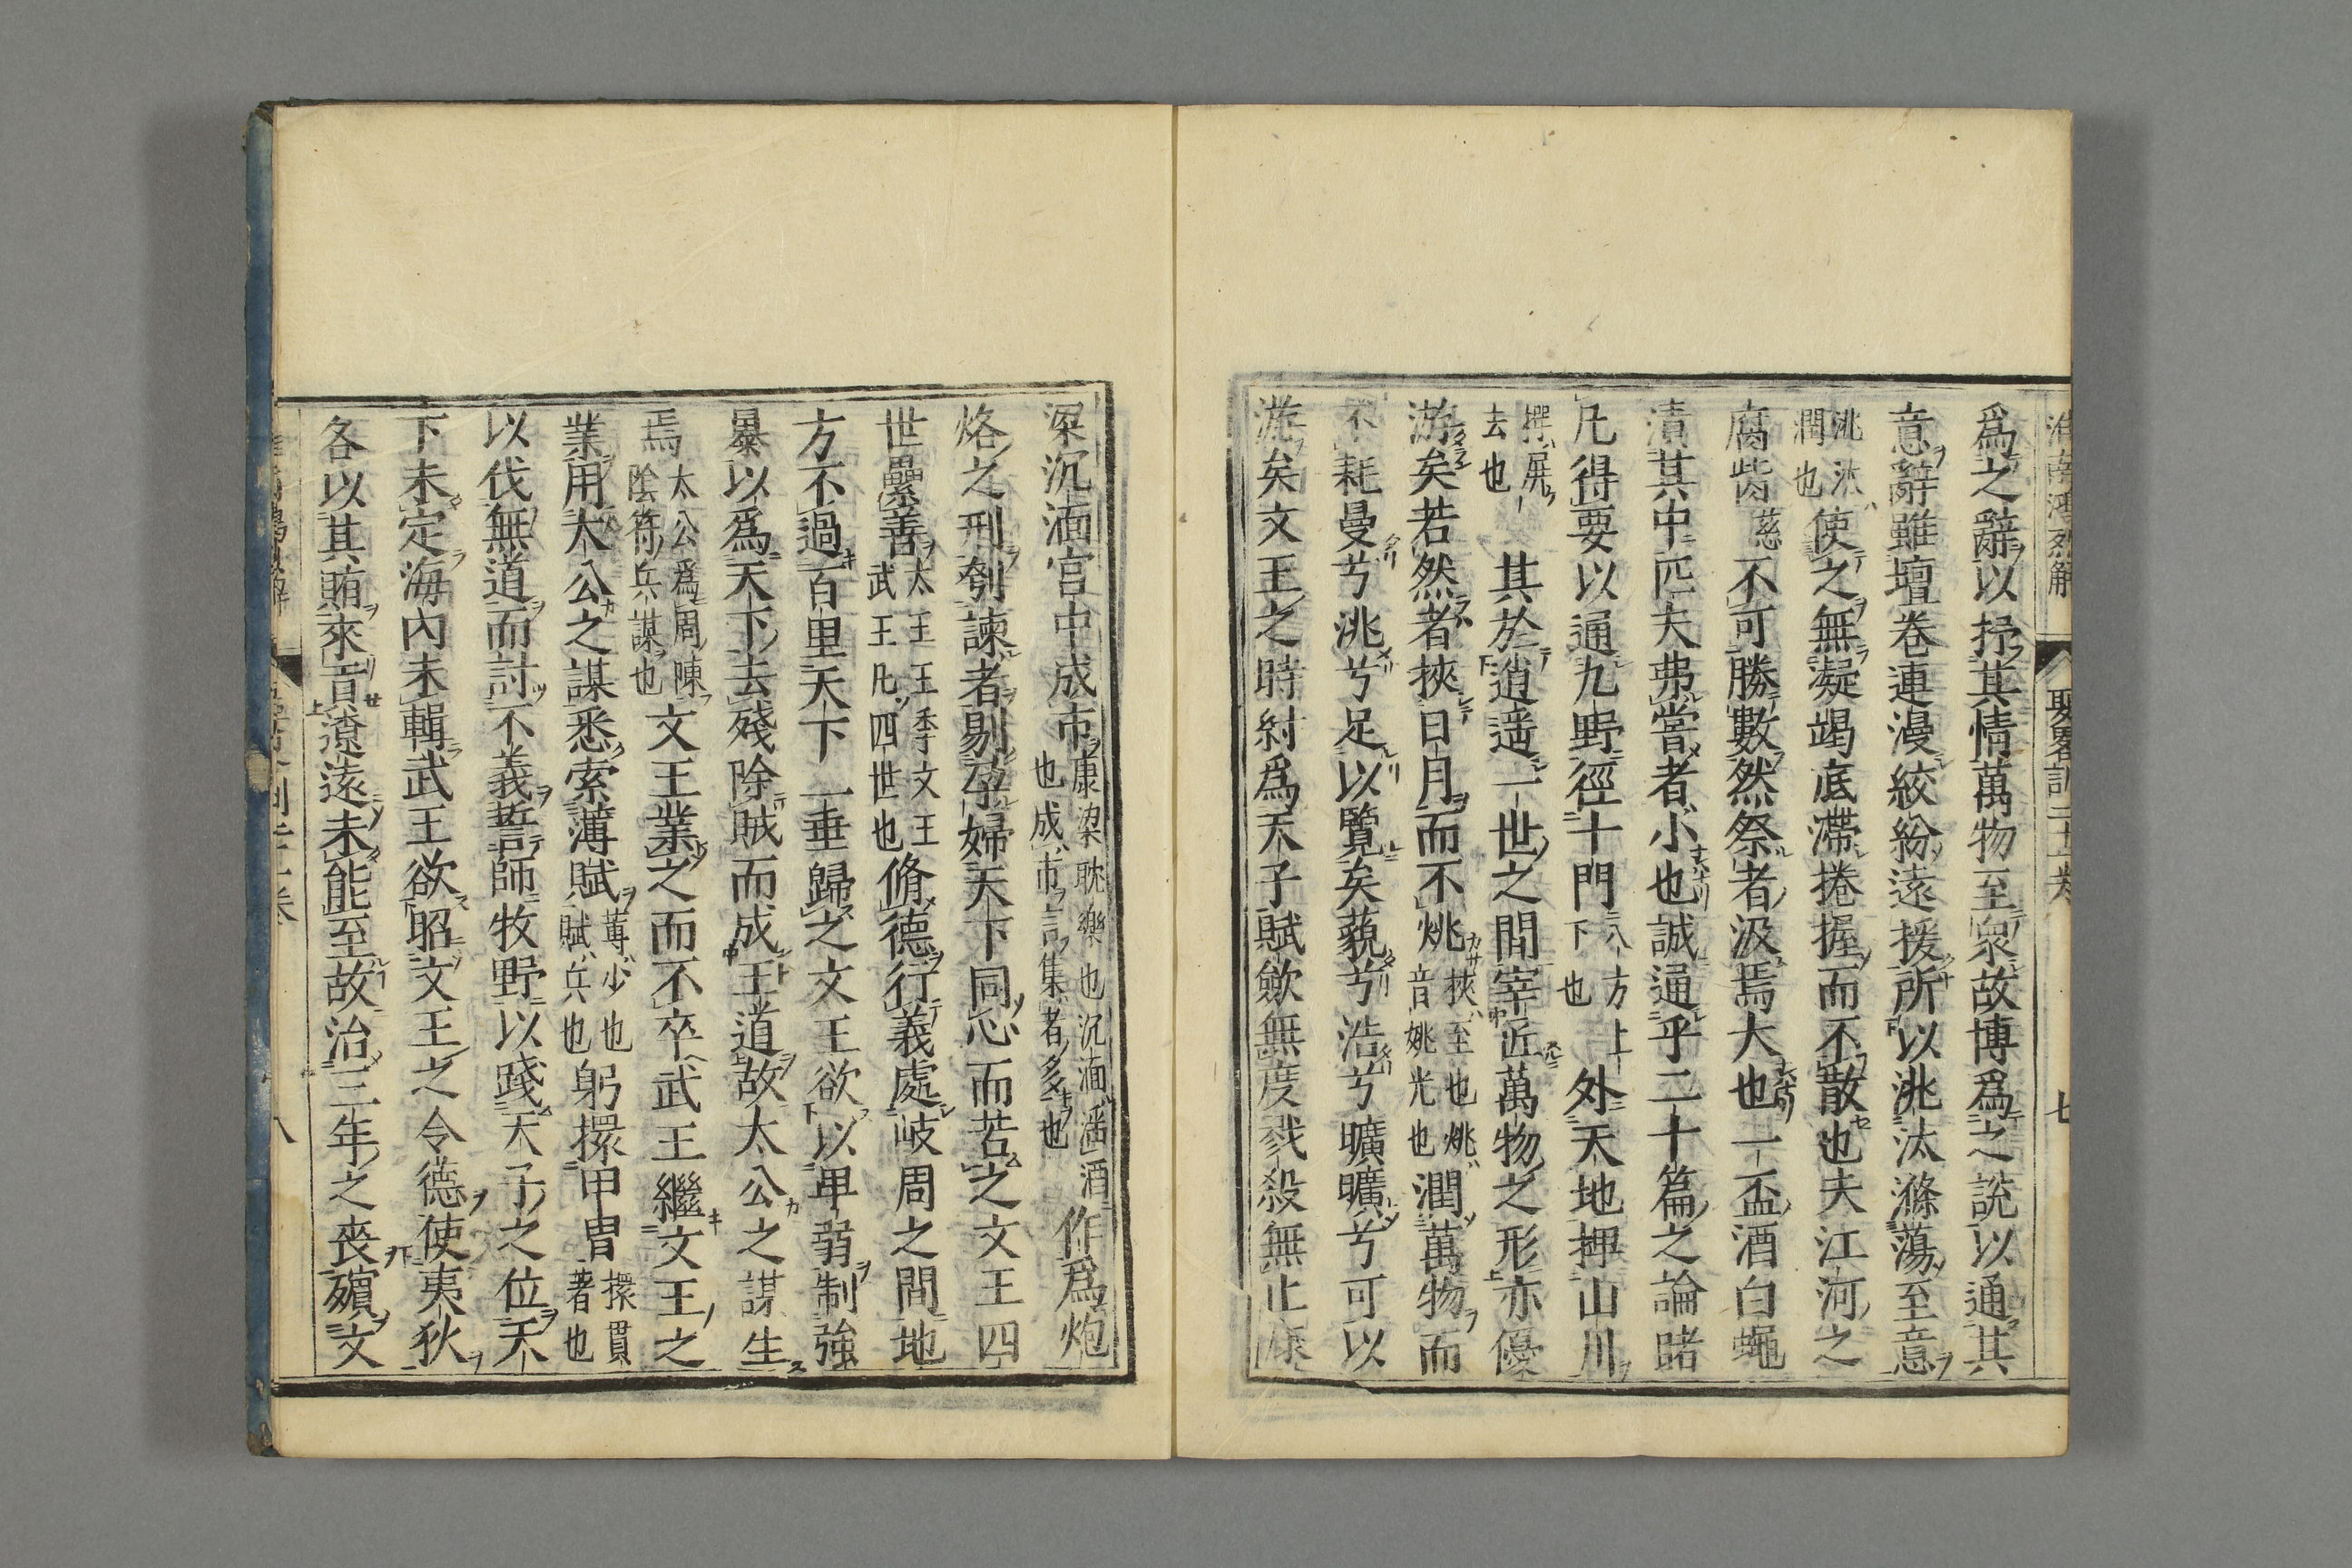 爲之辭以抒其情萬物至衆故博爲之說以通其
意辭雖壇卷連漫絞紛遠援所以洮汰滌蕩至意
洮汰潤也使之無凝竭底滯捲握而不散也夫江河之
腐胔慈不可勝數然祭者汲焉大也一盃酒白蠅
漬其中匹夫弗嘗者小也誠通乎二十篇之論睹
凡得要以通九野徑十門八方上下也外天地捭山川
捭屏去也其於逍遥一世之間宰匠萬物之形亦優
游矣若然者挾日月而不烑挾至也烑音姚光也潤萬物而
不耗曼兮洮兮足以覽矣藐兮浩兮曠曠兮可以
游矣文王之時紂爲天子賦斂無度戮殺無止康
梁沉湎宮中成市康梁耽樂也沉湎酒也成市言集者多也作爲炮
烙之刑刳諫者剔孕婦天下同心而苦之文王四
世纍善太王王季文王武王凡四世也脩德行義處岐周之間地
方不過百里天下二垂歸之文王欲以卑弱制強
暴以爲天下去殘除賊而成王道故太公之謀生
焉太公爲周陳陰符兵謀也文王業之而不卒武王繼文王之
業用太公之謀悉索薄賦薄少也賦兵也躬擐甲冑擐貫著也
以伐無道而討不義誓師牧野以踐天子之位天
下未定海內未輯武王欲昭文王之令德使夷狄
各以其賄來貢遼遠未能至故治三年之喪殯文
八